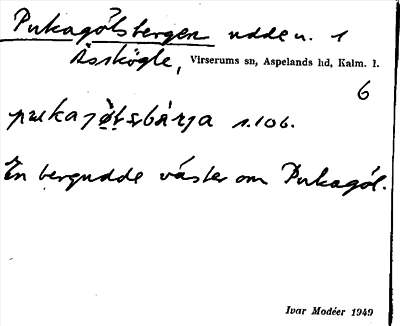 Pukagölsbergen udde u. 1
Åsskögle, Virserums sn, Aspelands hd, Kalm. l.
6
pukajø̀ḷsbárja s. 106.
En bergudde väster om Pukagöl.
Ivar Modéer 1949